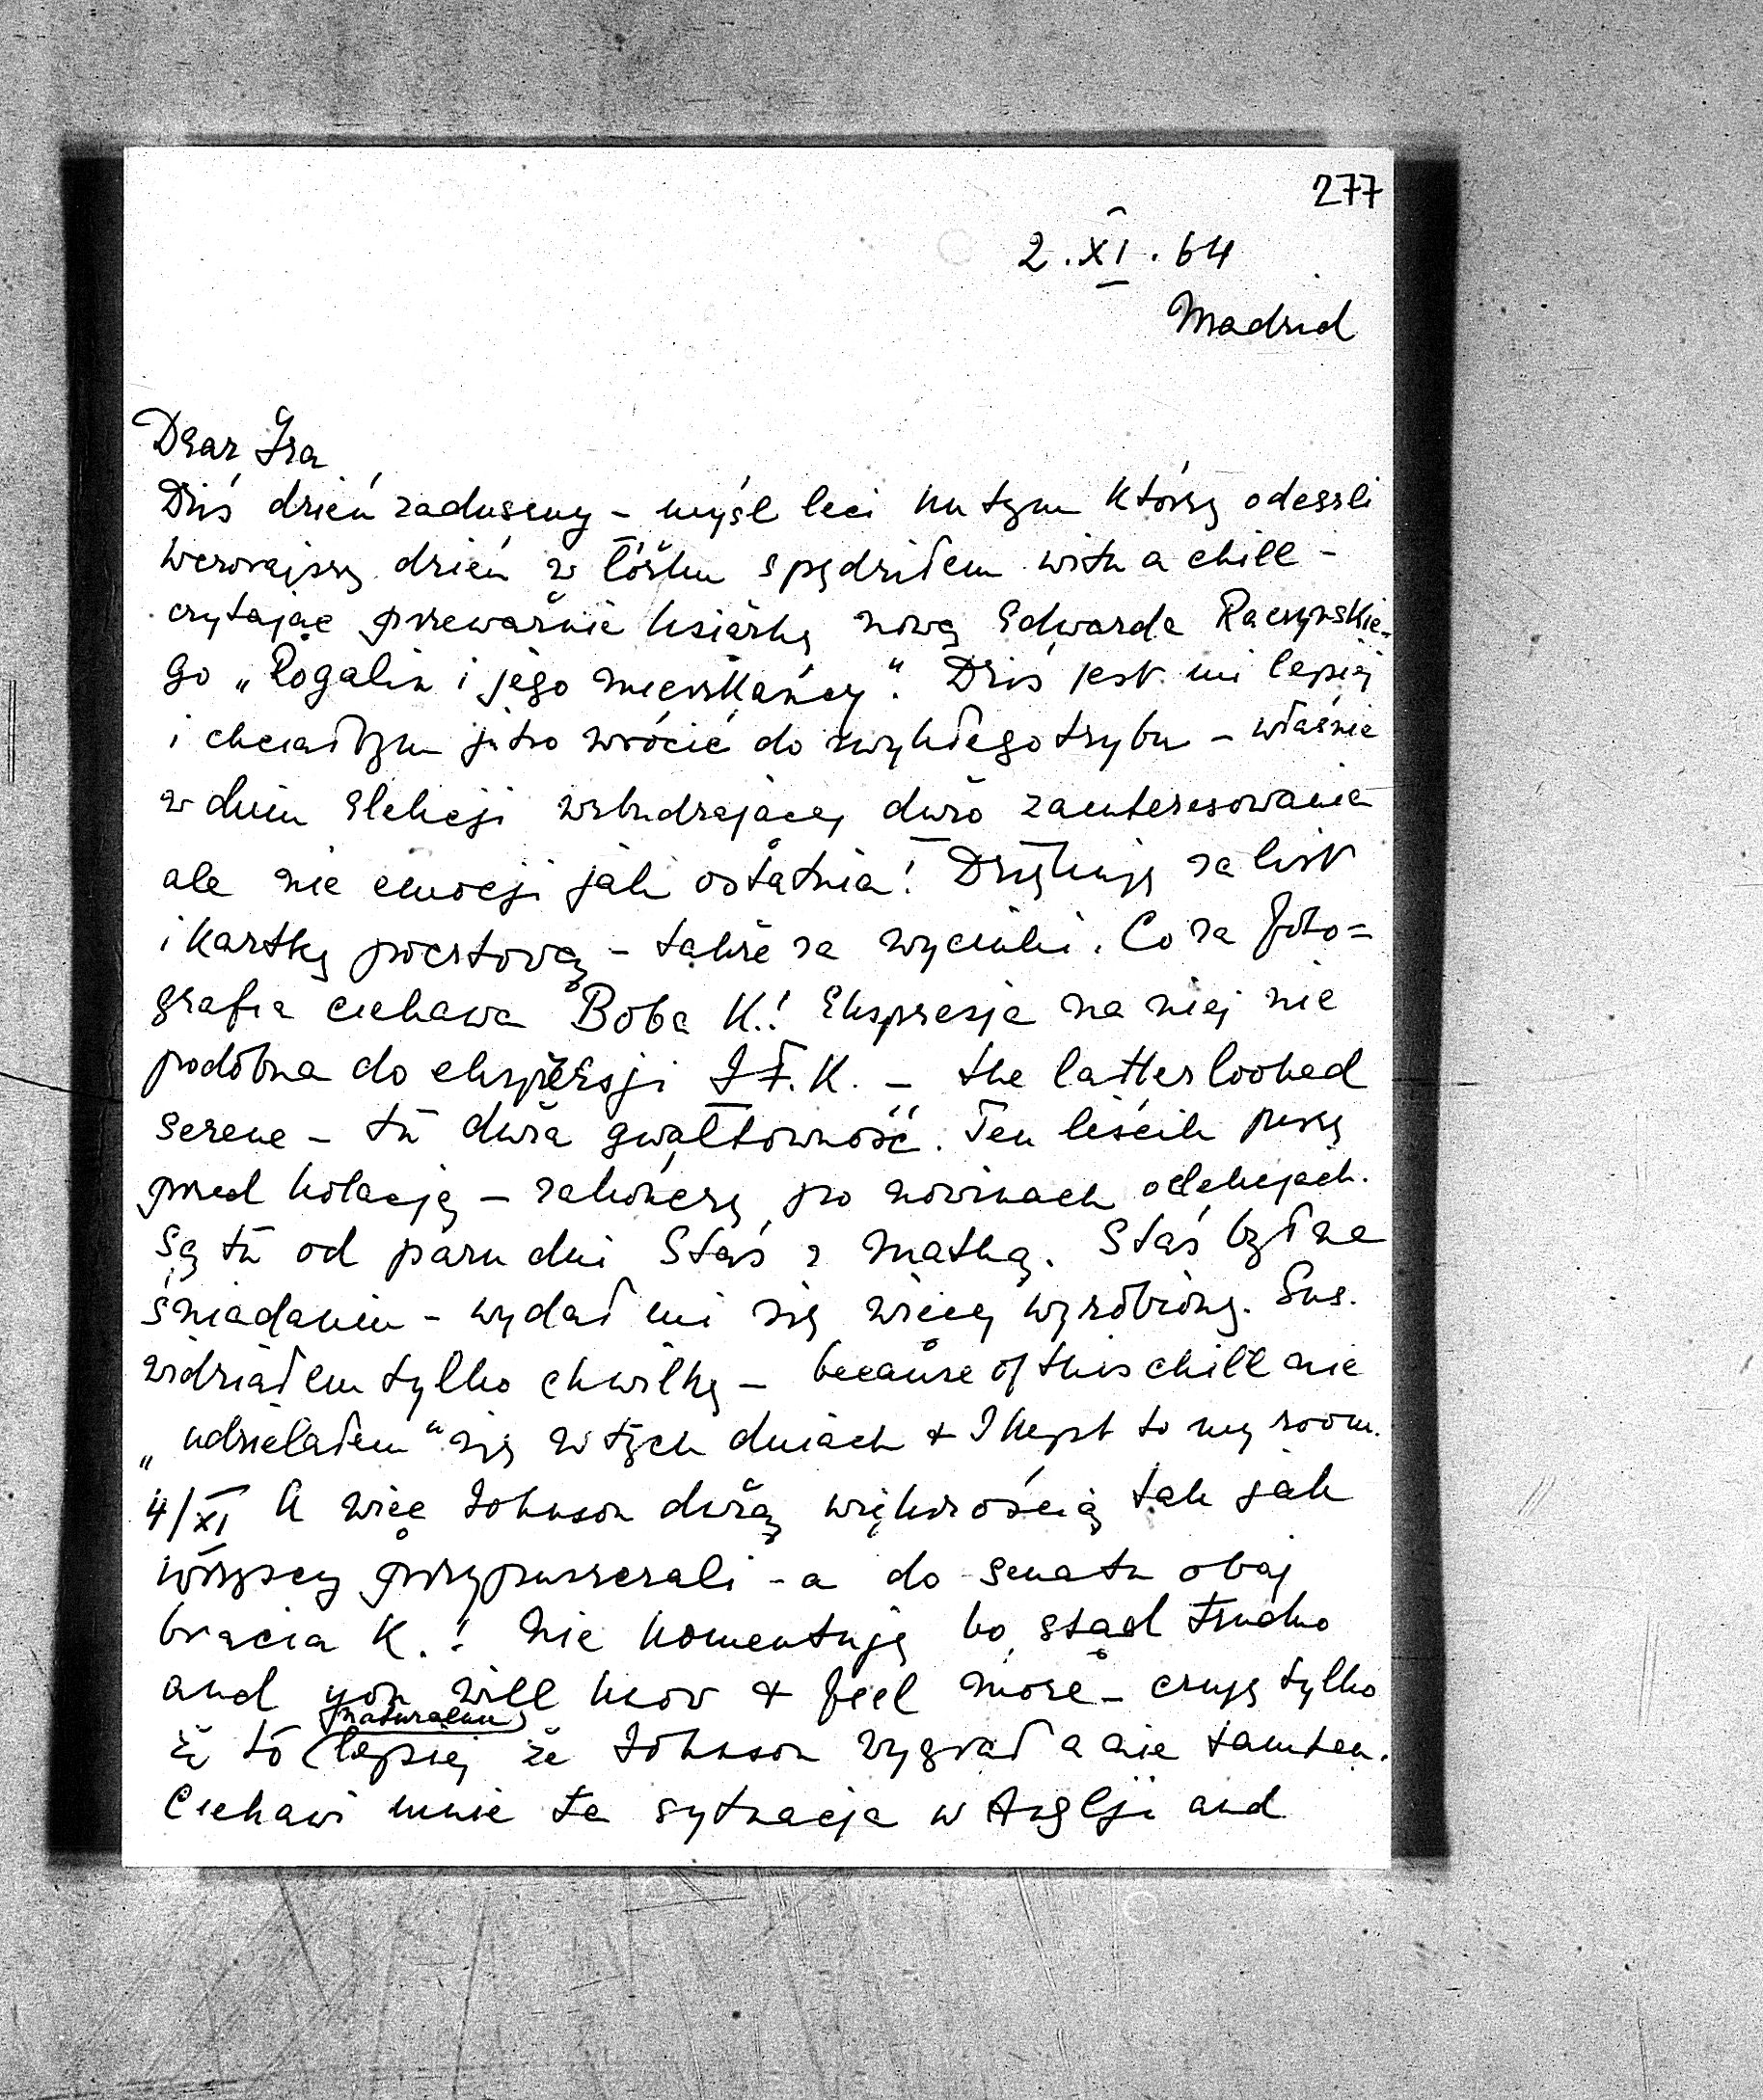 277
2.XI.64
Madrid
Dear Ira
Dziś dzień zaduszny – myśl leci ku tym którzy odeszli
Wczorajszy dzień w łóżku spędziłem with a chill –
czytając przeważnie książkę nową Edwarda Raczyńskie-
go „Rogalin i jego mieszkańcy". Dziś jest mi lepiej
i chciałbym jutro wrócić do zwykłego trybu – właśnie
w dniu elekcji wzbudzającej dużo zainteresowania
ale nie emocji jak ostatnia! Dziękuję za list
i kartkę pocztową – także za wycinki. Co za foto=
grafia ciekawa Boba K.! Ekspresja na niej nie
podobna do ekspresji J.F.K. – the latter looked
serene – tu duża gwałtowność. Ten liścik piszę
przed kolacją – zakończę po nowinach o elekcjach.
Są tu od paru dni Staś z Matką. Staś był na
śniadaniu – wydał mi się więcej wyrobiony. Sus.
widziałem tylko chwilkę – because of this chill nie
„udzielałem" się w tych dniach & I kept to my room.
4/XI A więc Johnson dużą większością tak jak
wszyscy przypuszczali – a do senatu obaj
bracia K.! Nie komentuję bo stąd trudno
and you will know & feel more – czuję tylko
że to (naturalnie) lepiej że Johnson wygrał a nie tamten.
Ciekawi mnie ta sytuacja w Anglji and